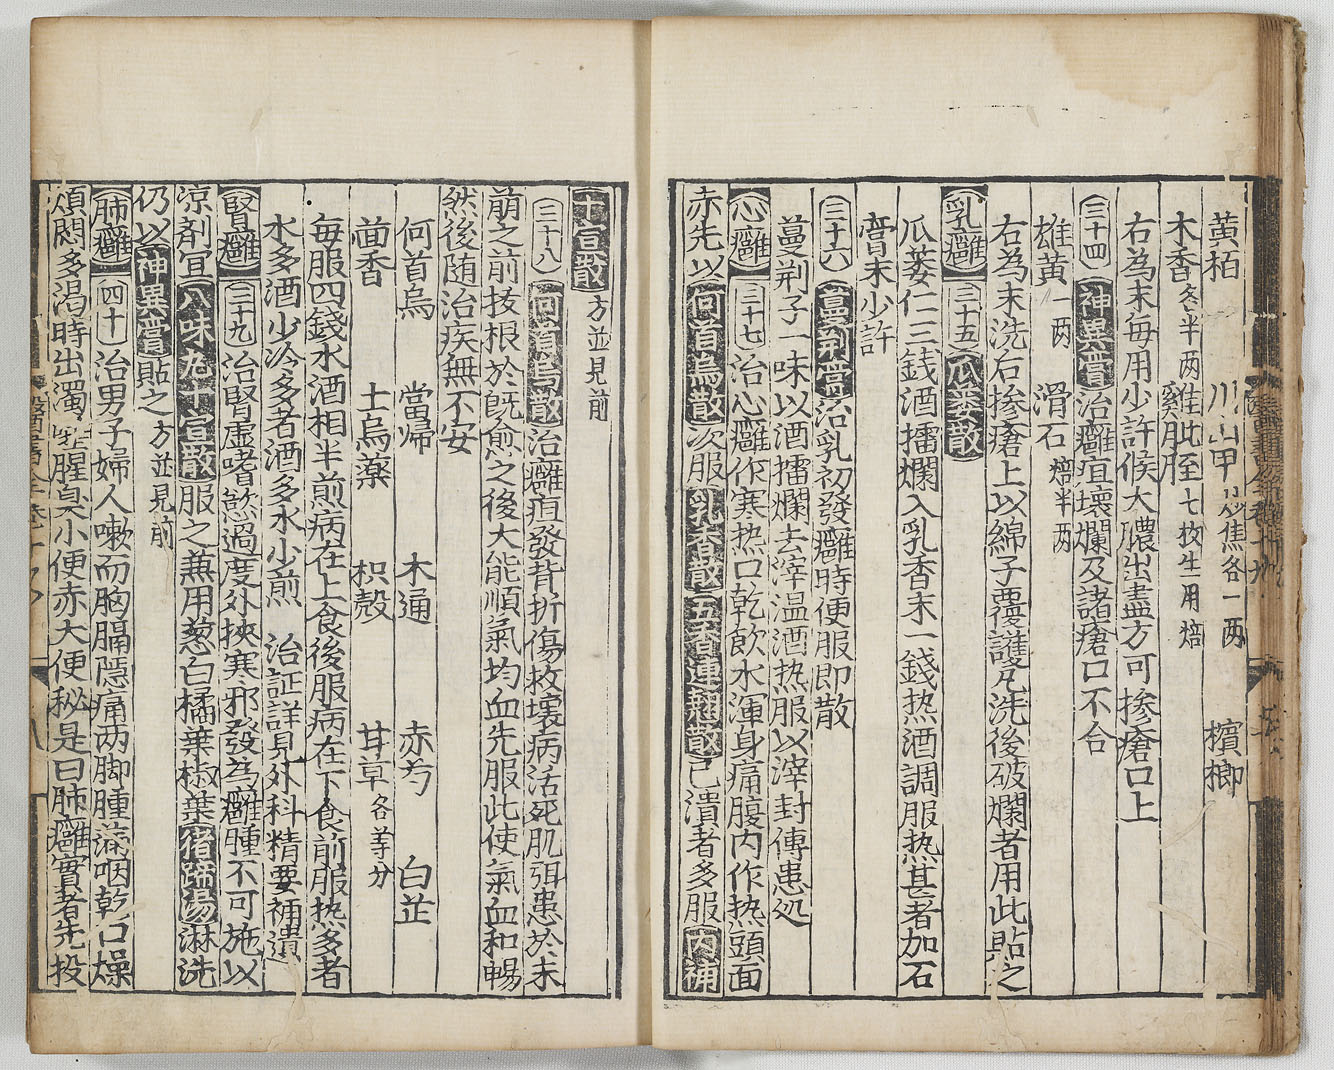 黄栢 川山甲炒焦各一两 檳榔
木香各半两 雞肶胵七枚生用焙
右為末每用少許候大膿出盡方可摻瘡口上
三十四 神異膏 治癰疽壞爛及諸瘡口不合
雄黄一两 滑石焙半两
右為末洗右摻瘡上以綿子覆護凡洗後破爛者用此貼之
乳癰 三十五 瓜蔞散
瓜蔞仁三銭酒擂爛入乳香末一錢热酒調服热甚者加石
膏末少許
三十六 蔓荆膏 治乳初發癰時便服即散
蔓荆子一味以酒擂爛去滓温酒热服以滓封傅患処
心癰 三十七 治心癰作寒热口乾飲水渾身痛腹内作热頭面
赤先以何首烏散次服乳香散五香連翹散已潰者多服内補
十宣散方並見前
三十八 何首烏散 治癰疽發背折傷救壞病活死肌弭患於未
崩之前抜根於既愈之後大能順氣均血先服此使氣血和暢
然後随治疾無不安
何首烏 當歸 木通 赤芍 白芷
茴香 土烏薬 枳殻 甘草各等分
每服四錢水酒相半煎病在上食後服病在下食前服热多者
水多酒少冷多者酒多水少煎 治証詳見外科精要補遺
腎癰 三十九 治腎虚嗜慾過度外挾寒邪發為癰腫不可施以
凉剤宜八味丸十宣散服之兼用葱白橘葉椒葉猪蹄湯淋洗
仍以神異膏貼之方並見前
肺癰 四十 治男子婦人嗽而胸膈隠痛两脚腫満咽乾口燥
煩悶多渴時出濁唾腥臭小便赤大便秘是曰肺癰實者先投